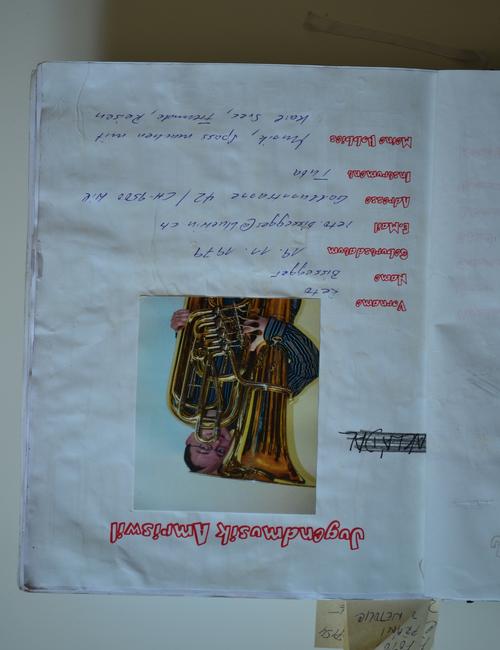 Jugendmusik Amriswil
Vorname Reto
Name Bissegger
Geburtsdatum 19. 11. 1979
E-Mail reto.bissegger@bluewin.ch
Adresse 42 / CH-9500 Wil
Instrument Tuba
Meine Hobbies Musik, Spass machen mit
Karl Svec, Freunde, Reisen